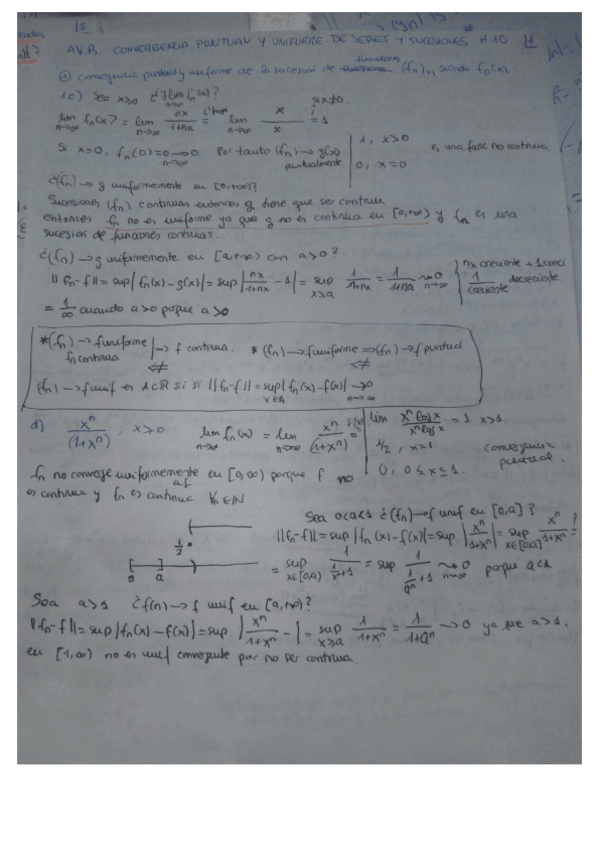 AV.R. CONVERGENCIA PUNTUAL Y UNIFORME DE SERIES Y SUCESIONES H.10 1
① convergencia puntual y uniforme de la sucesión de funciones (fn)n siendo fn(x).
1c) Sea x≥0 ¿∃ lim n→∞ fn(x)?
lim n→∞ fn(x) = lim n→∞ nx/1+nx = L'hop lim n→∞ x/x = 1 si x≠0.
Si x=0, fn(0)=0 → 0 n→∞ Por tanto (fn) → g(x) puntualmente | 1, x>0 | 0, x=0 es una func no continua
¿(fn) → g uniformemente en [0,+∞)?
Sucesiones (fn) continuas entonces g tiene que ser continua
entonces fn no es uniforme ya que g no es continua en [0,+∞) y fn es una
sucesión de funciones continuas.
¿(fn) → g uniformemente en [a,+∞) con a>0?
||fn-f|| = sup|fn(x)-g(x)| = sup|nx/1+nx - 1| = sup x≥a 1/1+nx = 1/1+na → 0 n→∞ { nx creciente + 1 creci 1/creciente decreciente.
= 1/∞ cuando a>0 porque a>0
*(fn) → f uniforme fn continua |→ f continua. * (fn) → f uniforme ⇒ (fn) → f puntual
(fn) → f unif en A⊂R si si ||fn-f|| = sup x∈A |fn(x)-f(x)| → 0 n→∞
d) x^n/(1+x^n), x>0 lim n→∞ fn(x) = lim n→∞ x^n/(1+x^n) = | lim x^n log x/x^n log x = 1 x>1 | 1/2, x=1 | 0, 0≤x≤1. convergencia puntual.
fn no converge uniformemente en [0,∞) porque f no
a f
es continua y fn es continua ∀n∈N
Sea 0<a<1 ¿(fn) → f unif en [0,a]?
1/2
0 a 1
||fn-f|| = sup|fn(x)-f(x)| = sup|x^n/1+x^n| = sup x∈[0,a] x^n/1+x^n = ?
= sup x∈[0,a) 1/(1/x^n +1) = sup 1/(1/a^n +1) → 0 n→∞ porque a<1
Sea a>1 ¿f(n) → f unif en [a,+∞)?
||fn-f|| = sup|fn(x)-f(x)| = sup |x^n/1+x^n - 1| = sup x≥a 1/1+x^n = 1/1+a^n → 0 ya que a>1.
en [1,∞) no es unif convergente por no ser continua.